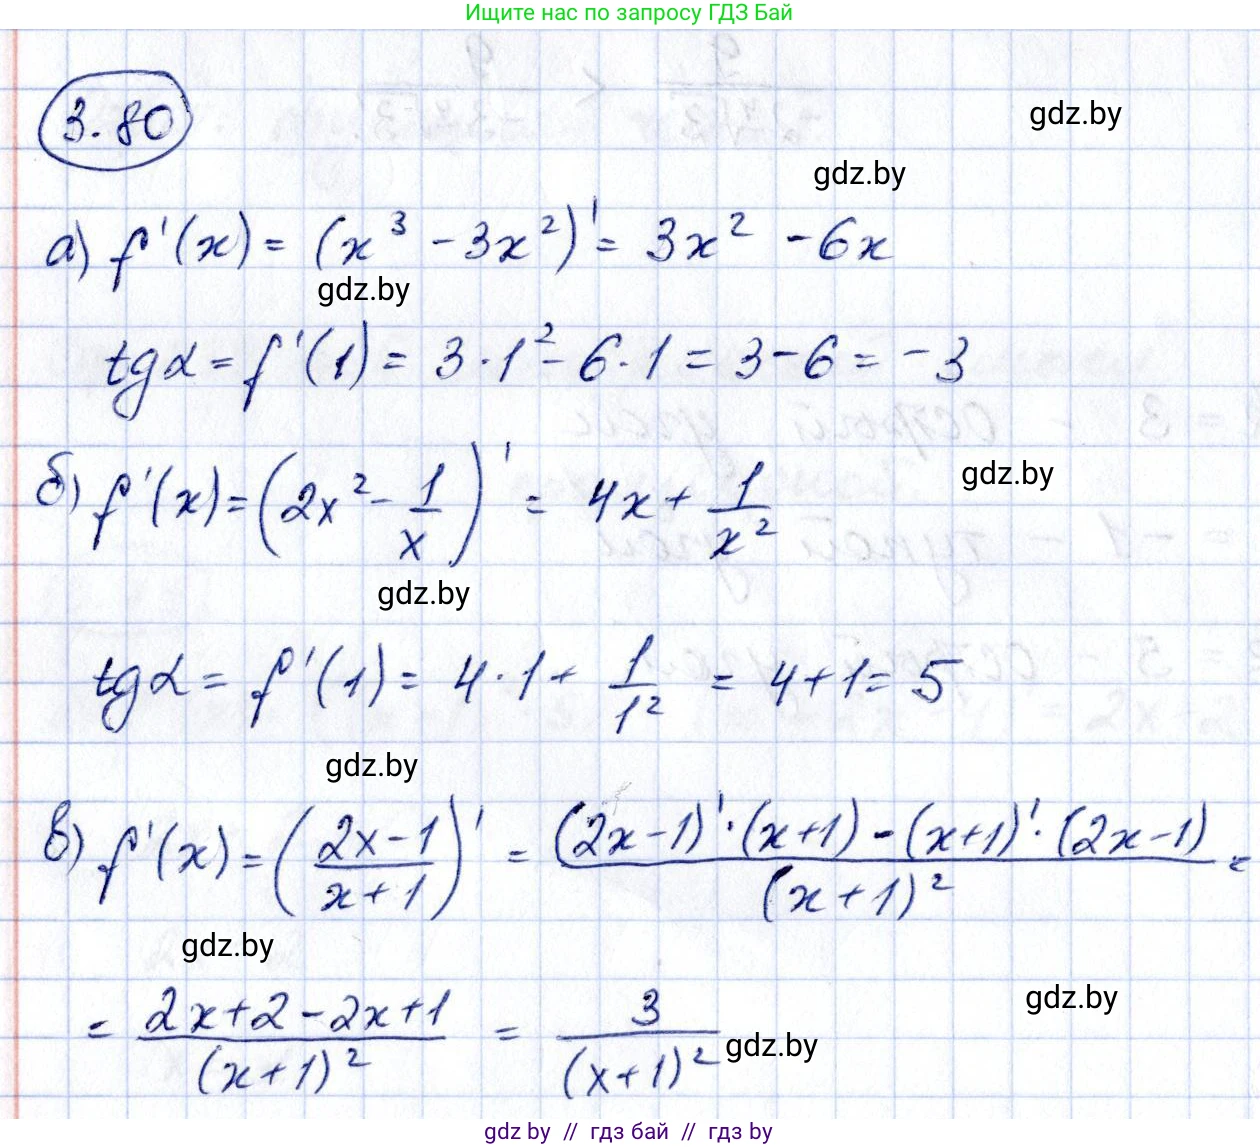 Ищите нас по запросу ГДЗ Бай
3.80
gdz.by
gdz.by
а) f'(x) = (x³ - 3x²)' = 3x² - 6x
gdz.by
tgα = f'(1) = 3·1² - 6·1 = 3 - 6 = -3
б) f'(x) = (2x² - 1/x)' = 4x + 1/x²
gdz.by
gdz.by
tgα = f'(1) = 4·1 + 1/1² = 4+1 = 5
gdz.by
в) f'(x) = ((2x-1)/(x+1))' = ((2x-1)'·(x+1) - (x+1)'·(2x-1))/(x+1)² =
gdz.by
gdz.by
= (2x+2-2x+1)/(x+1)² = 3/(x+1)²
gdz.by
gdz by // гдз бай // гдз by